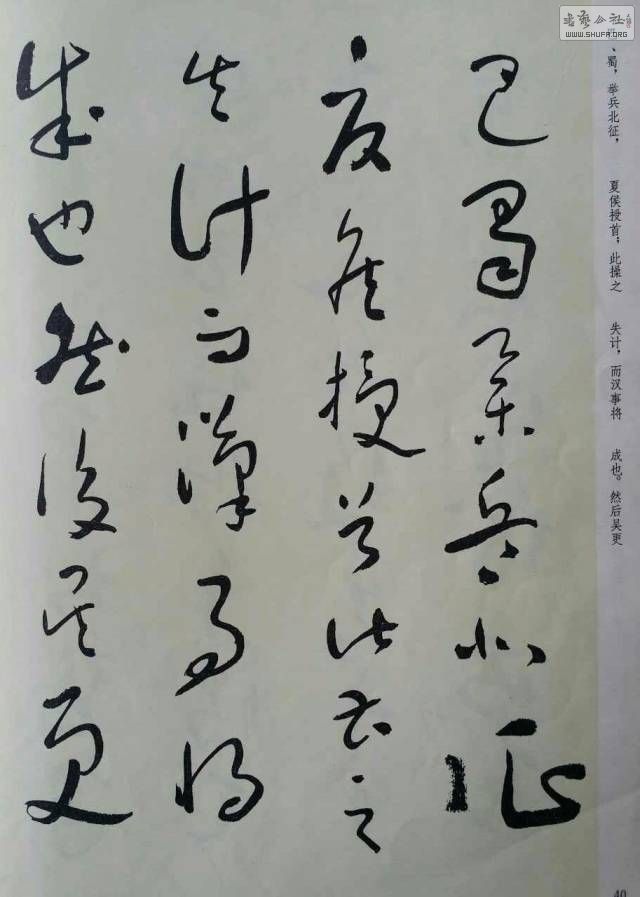 巴蜀举兵北征
夏侯授首此操之
失计而汉事将
成也然后吴更
蜀，举兵北征，
夏侯授首，此操之
失计，而汉事将
成也。然后吴更
书艺公社
WWW.SHUFA.ORG
40